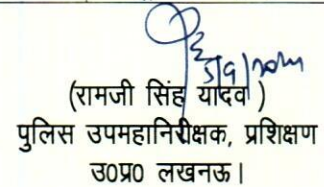 (रामजी सिंह यादव )
पुलिस उपमहानिरीक्षक, प्रशिक्षण
उ0प्र0 लखनऊ।